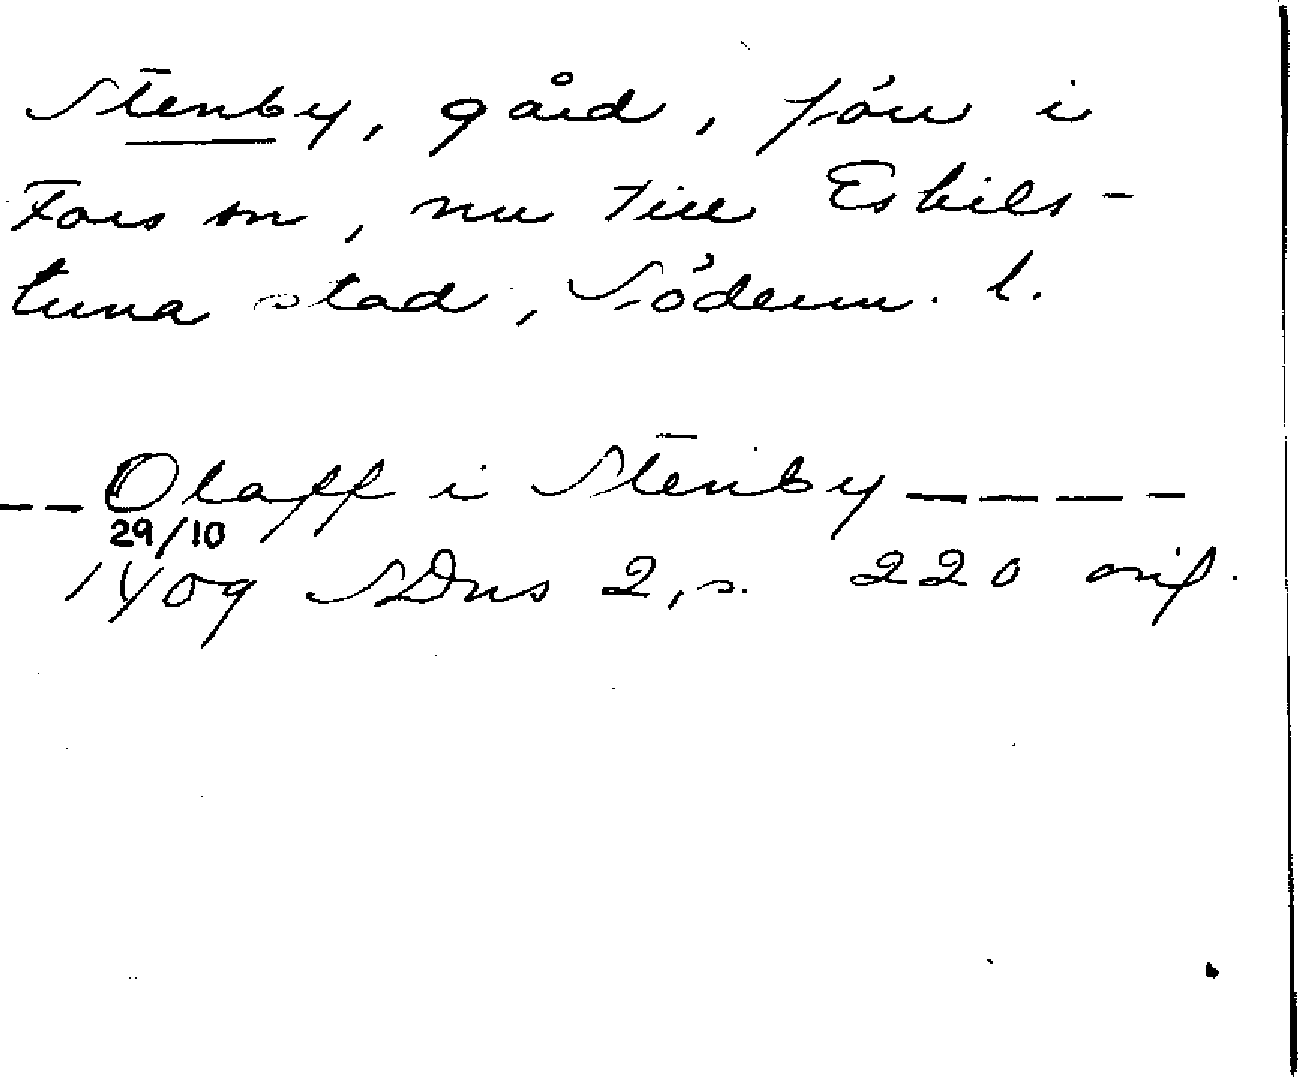 Stenby, gård, förr i
Fors sn, nu till Eskils-
tuna stad, Söderm. l.
-- Olaff i Stenby ----
29/10
1409 SDns 2, s. 220 orig.